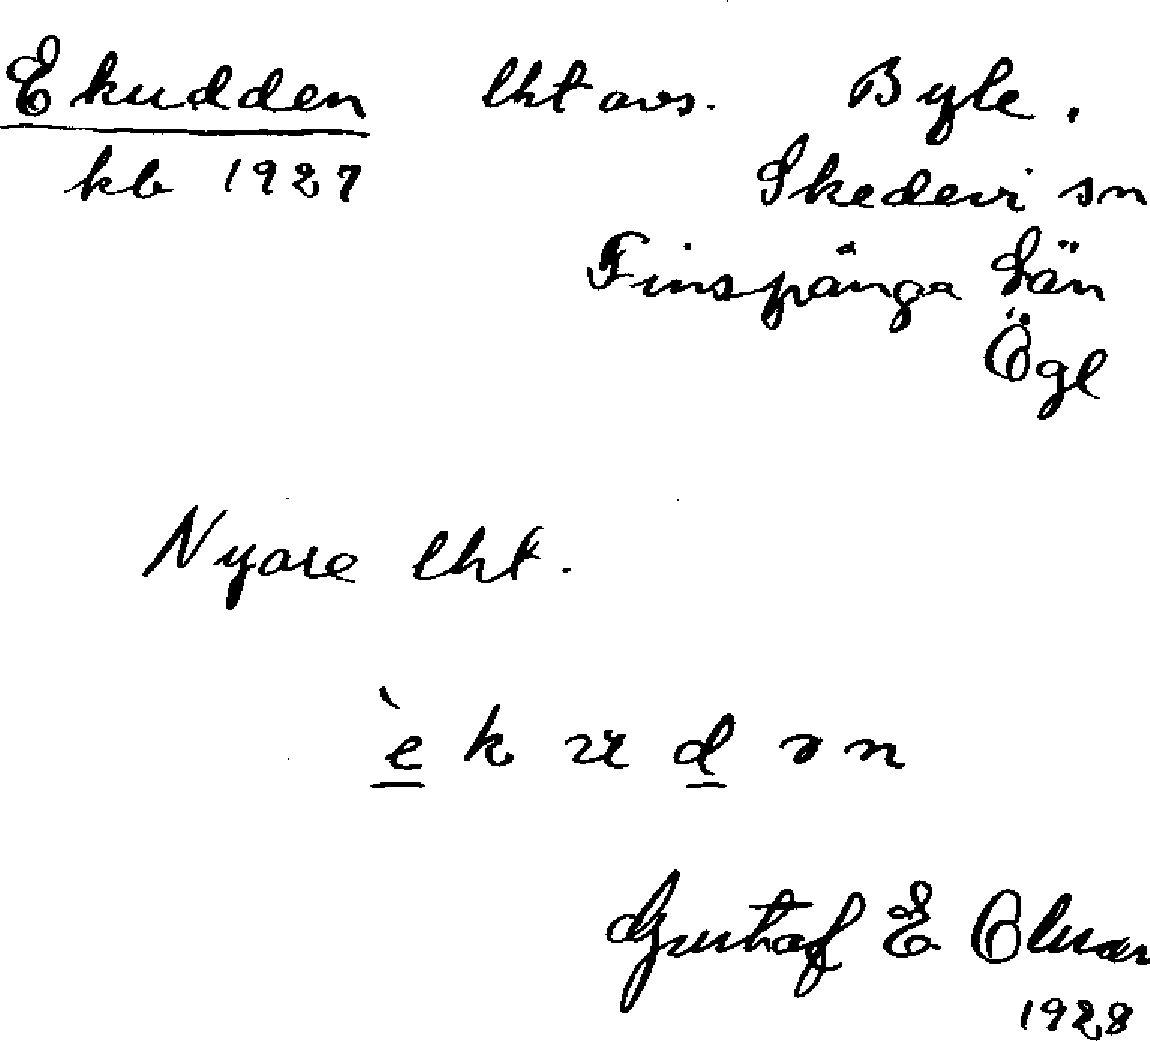 Ekudden lht avs. Byle.
kb 1927 Skedevi sn
Finspånga län
Ögl
Nyare lht.
è k u d ə n
Gustaf E Olsson
1928